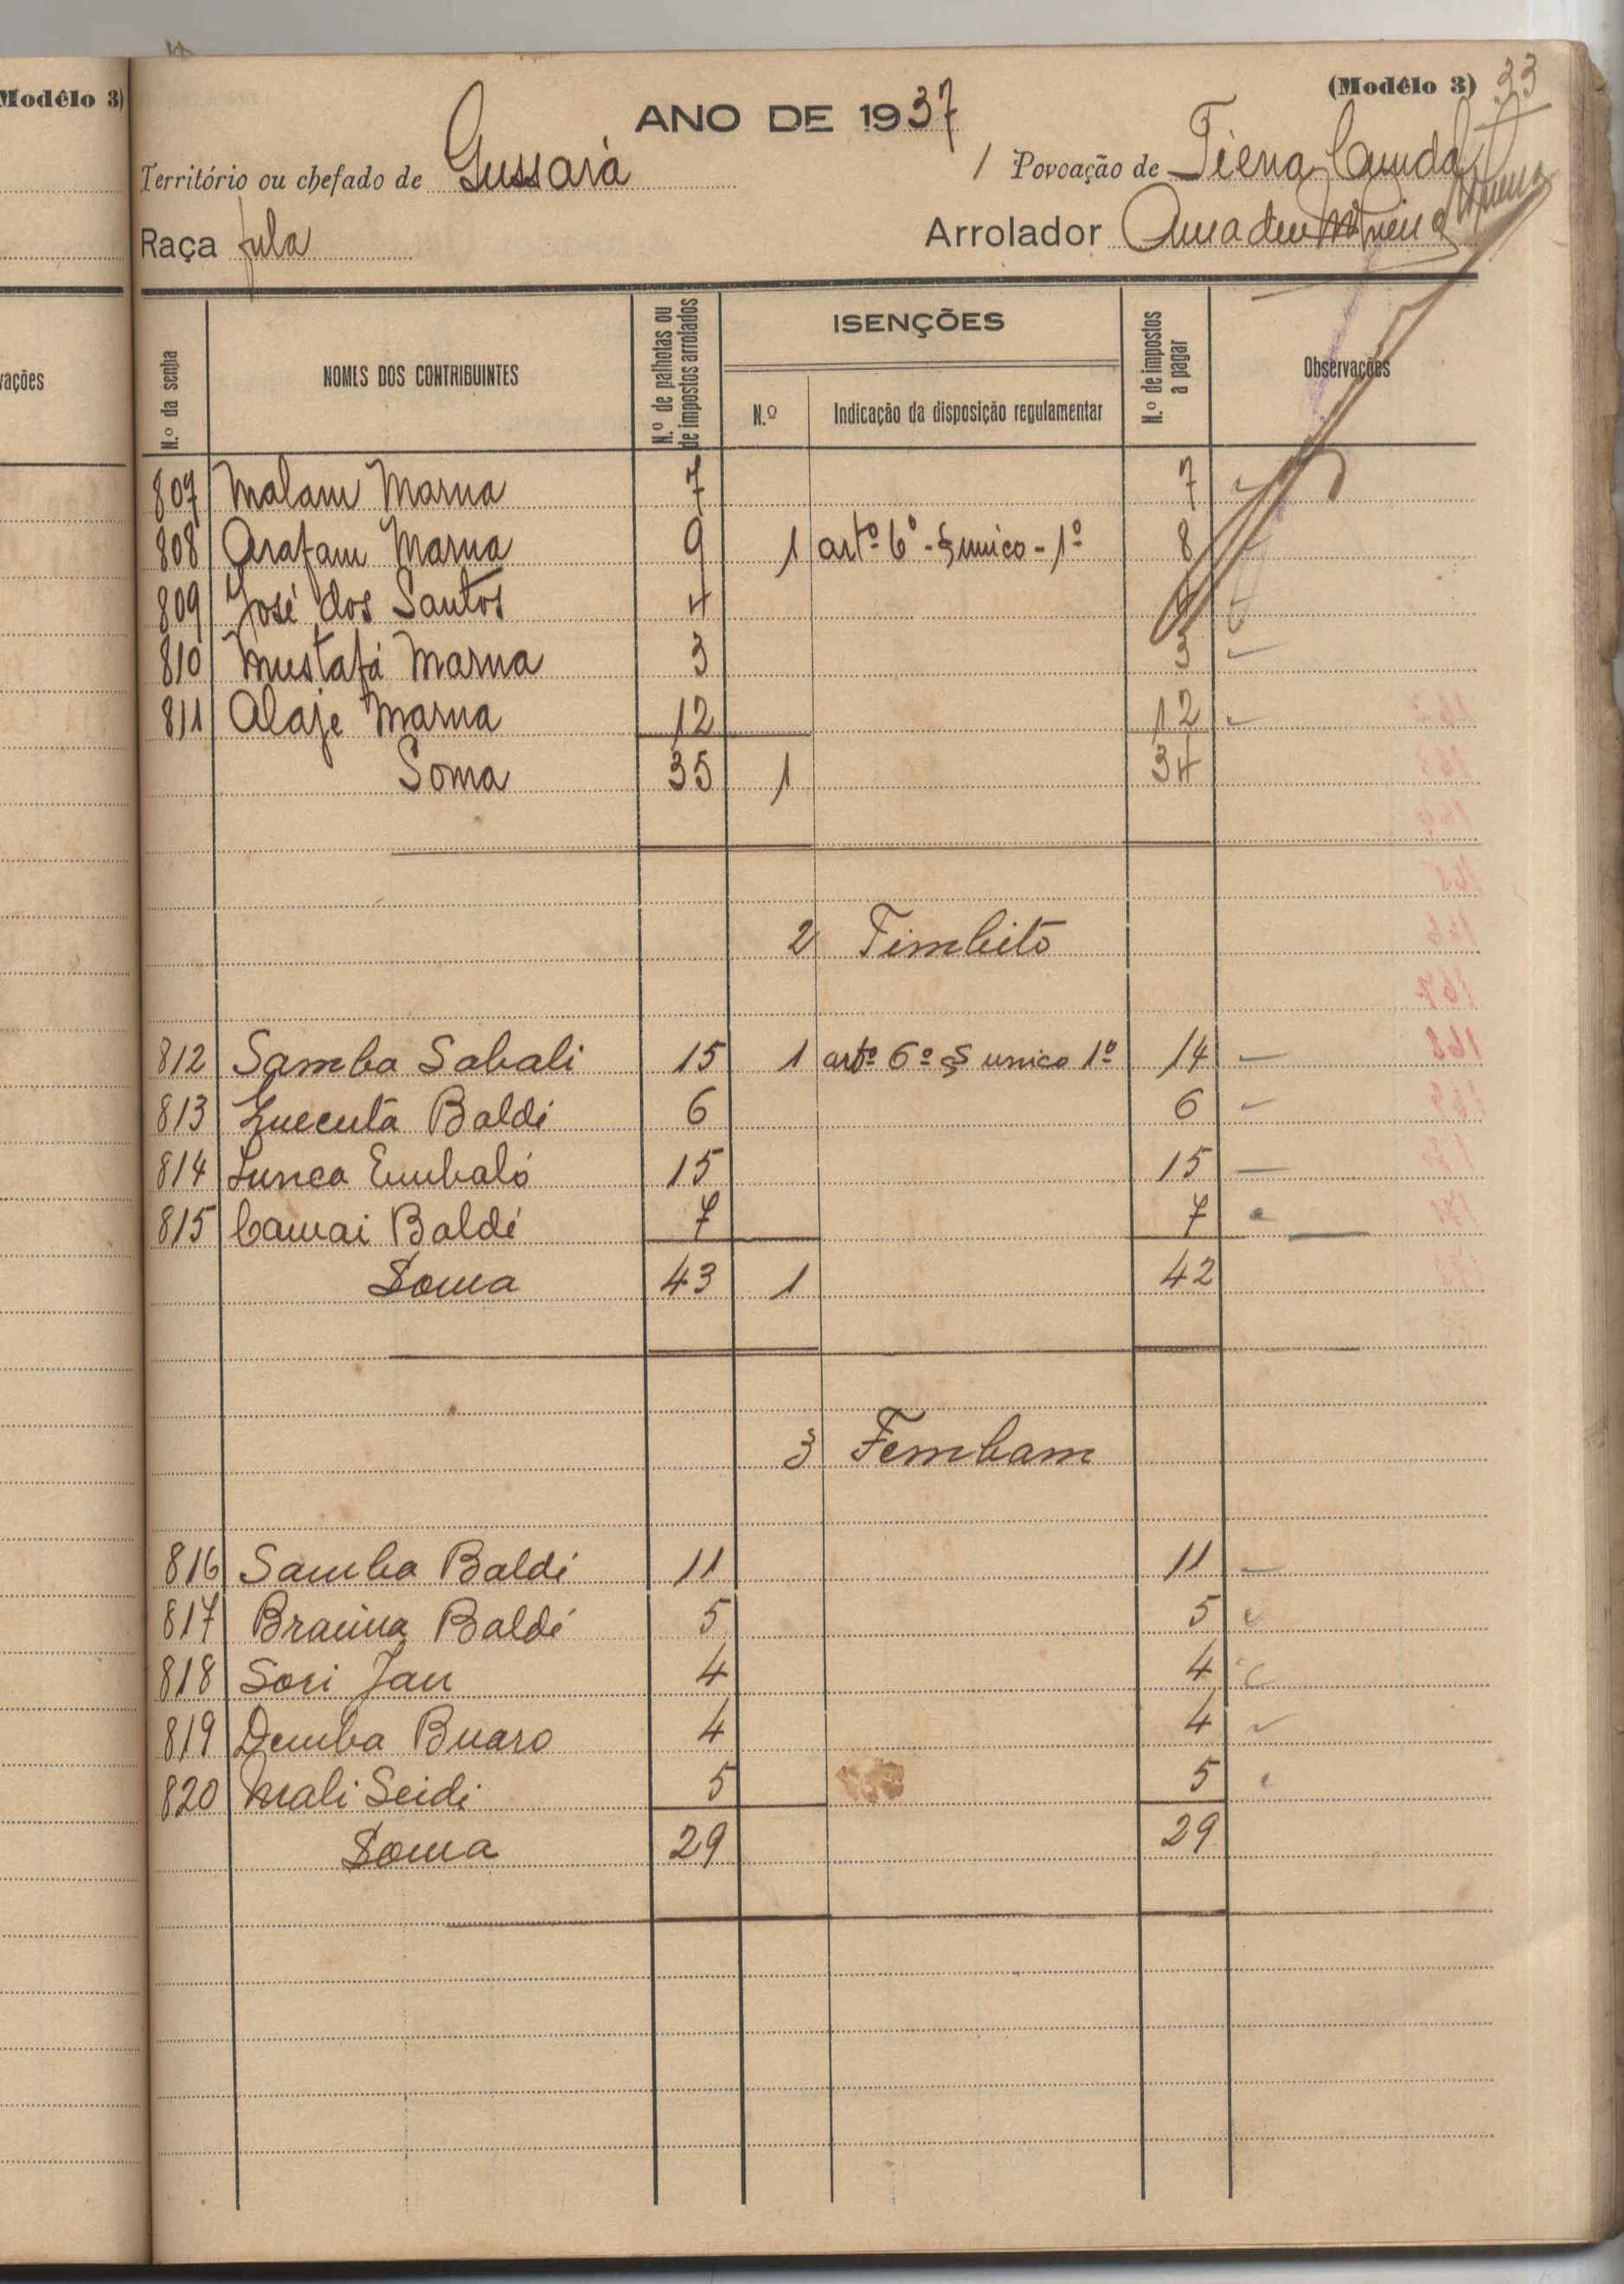 Modêlo 3)
(Modêlo 3) 33
ANO DE 1937
Território ou chefado de Gussará
1 Povoação de Tiena Cunda
Raça fula
Arrolador Amadeu
vações
N.º da senha
NOMES DOS CONTRIBUINTES
N.º de palhotas ou de impostos arrolados
ISENÇÕES
N.º
Indicação da disposição regulamentar
N.º de impostos a pagar
Observações
807 Malam Marna 7 7
808 Arafam Marna 9 1 artº 6º - § unico - 1º 8
809 José dos Santos 4 4
810 Mustafá Marna 3 3
811 Alaje Marna 12 12
Soma 35 1 34
2 Timbito
812 Samba Sabali 15 1 artº 6º § unico 1º 14
813 Guecuta Baldé 6 6
814 Sunca Embaló 15 15
815 Camai Baldé 7 7
Soma 43 1 42
3 Fembam
816 Samba Baldé 11 11
817 Braima Baldé 5 5
818 Sori Jau 4 4
819 Demba Buaro 4 4
820 Mali Seidi 5 5
Soma 29 29